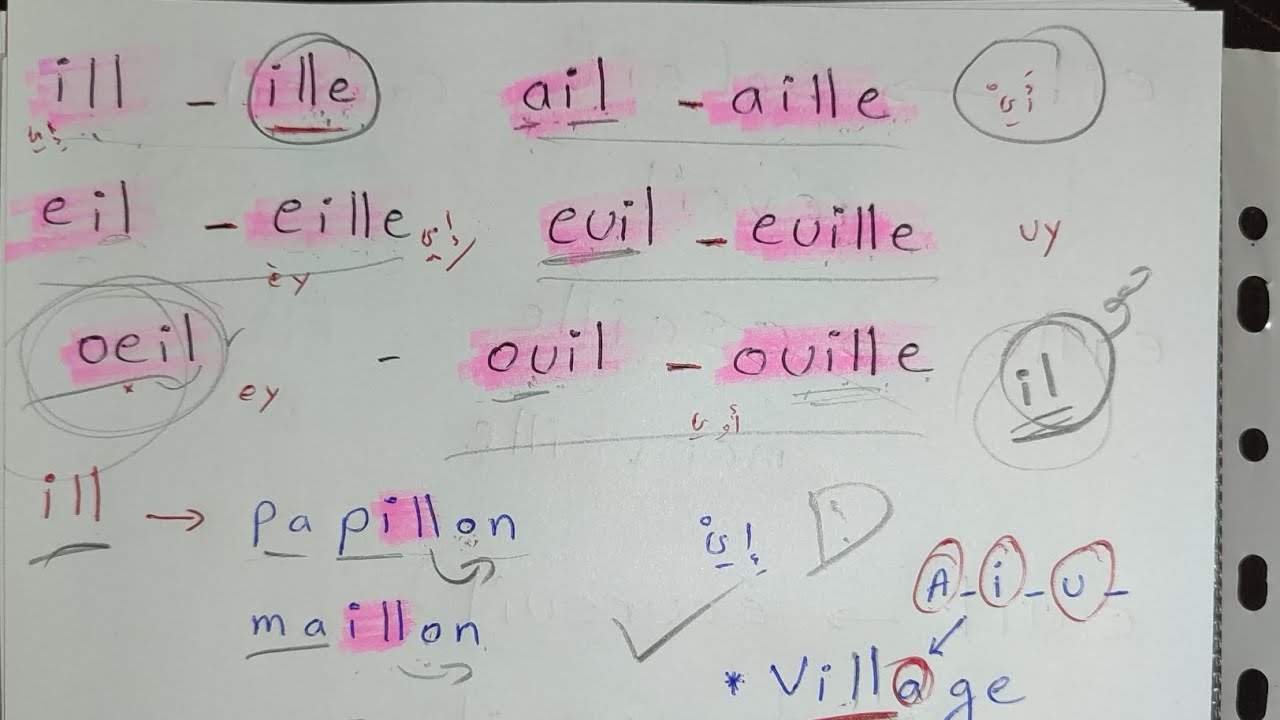 ill - ille ail - aille أيْ
إي
eil - eille إي euil - euille uy
èy
oeil - ouil - ouille il
ey أوي
ill → papillon إيْ
A - i - u -
maillon
* Village